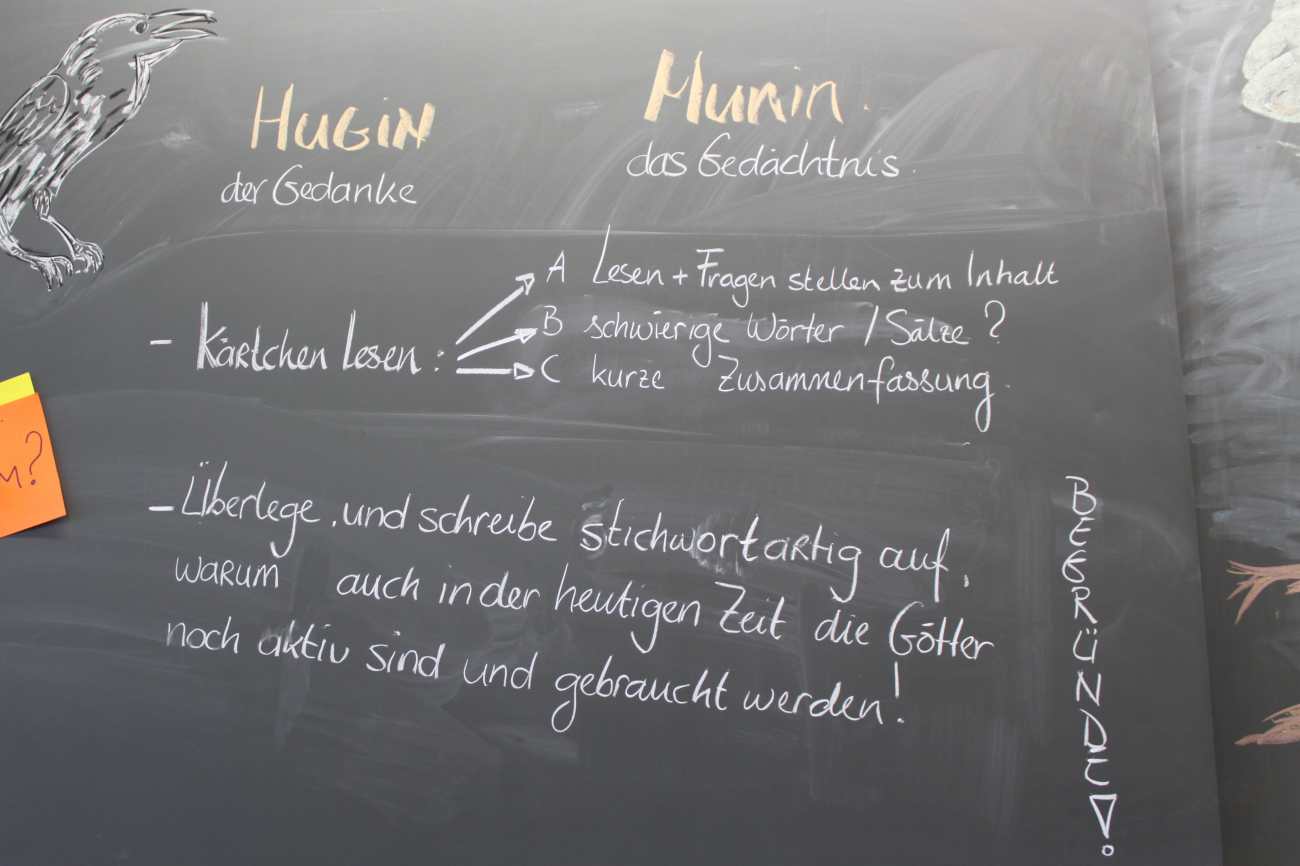 HUGIN
der Gedanke
Munin.
das Gedächtnis.
- Kärtchen Lesen:
A Lesen + Fragen stellen zum Inhalt
B schwierige Wörter / Sätze?
C kurze Zusammenfassung.
- Überlege und schreibe stichwortartig auf,
warum auch in der heutigen Zeit die Götter
noch aktiv sind und gebraucht werden!
BEGRÜNDE!